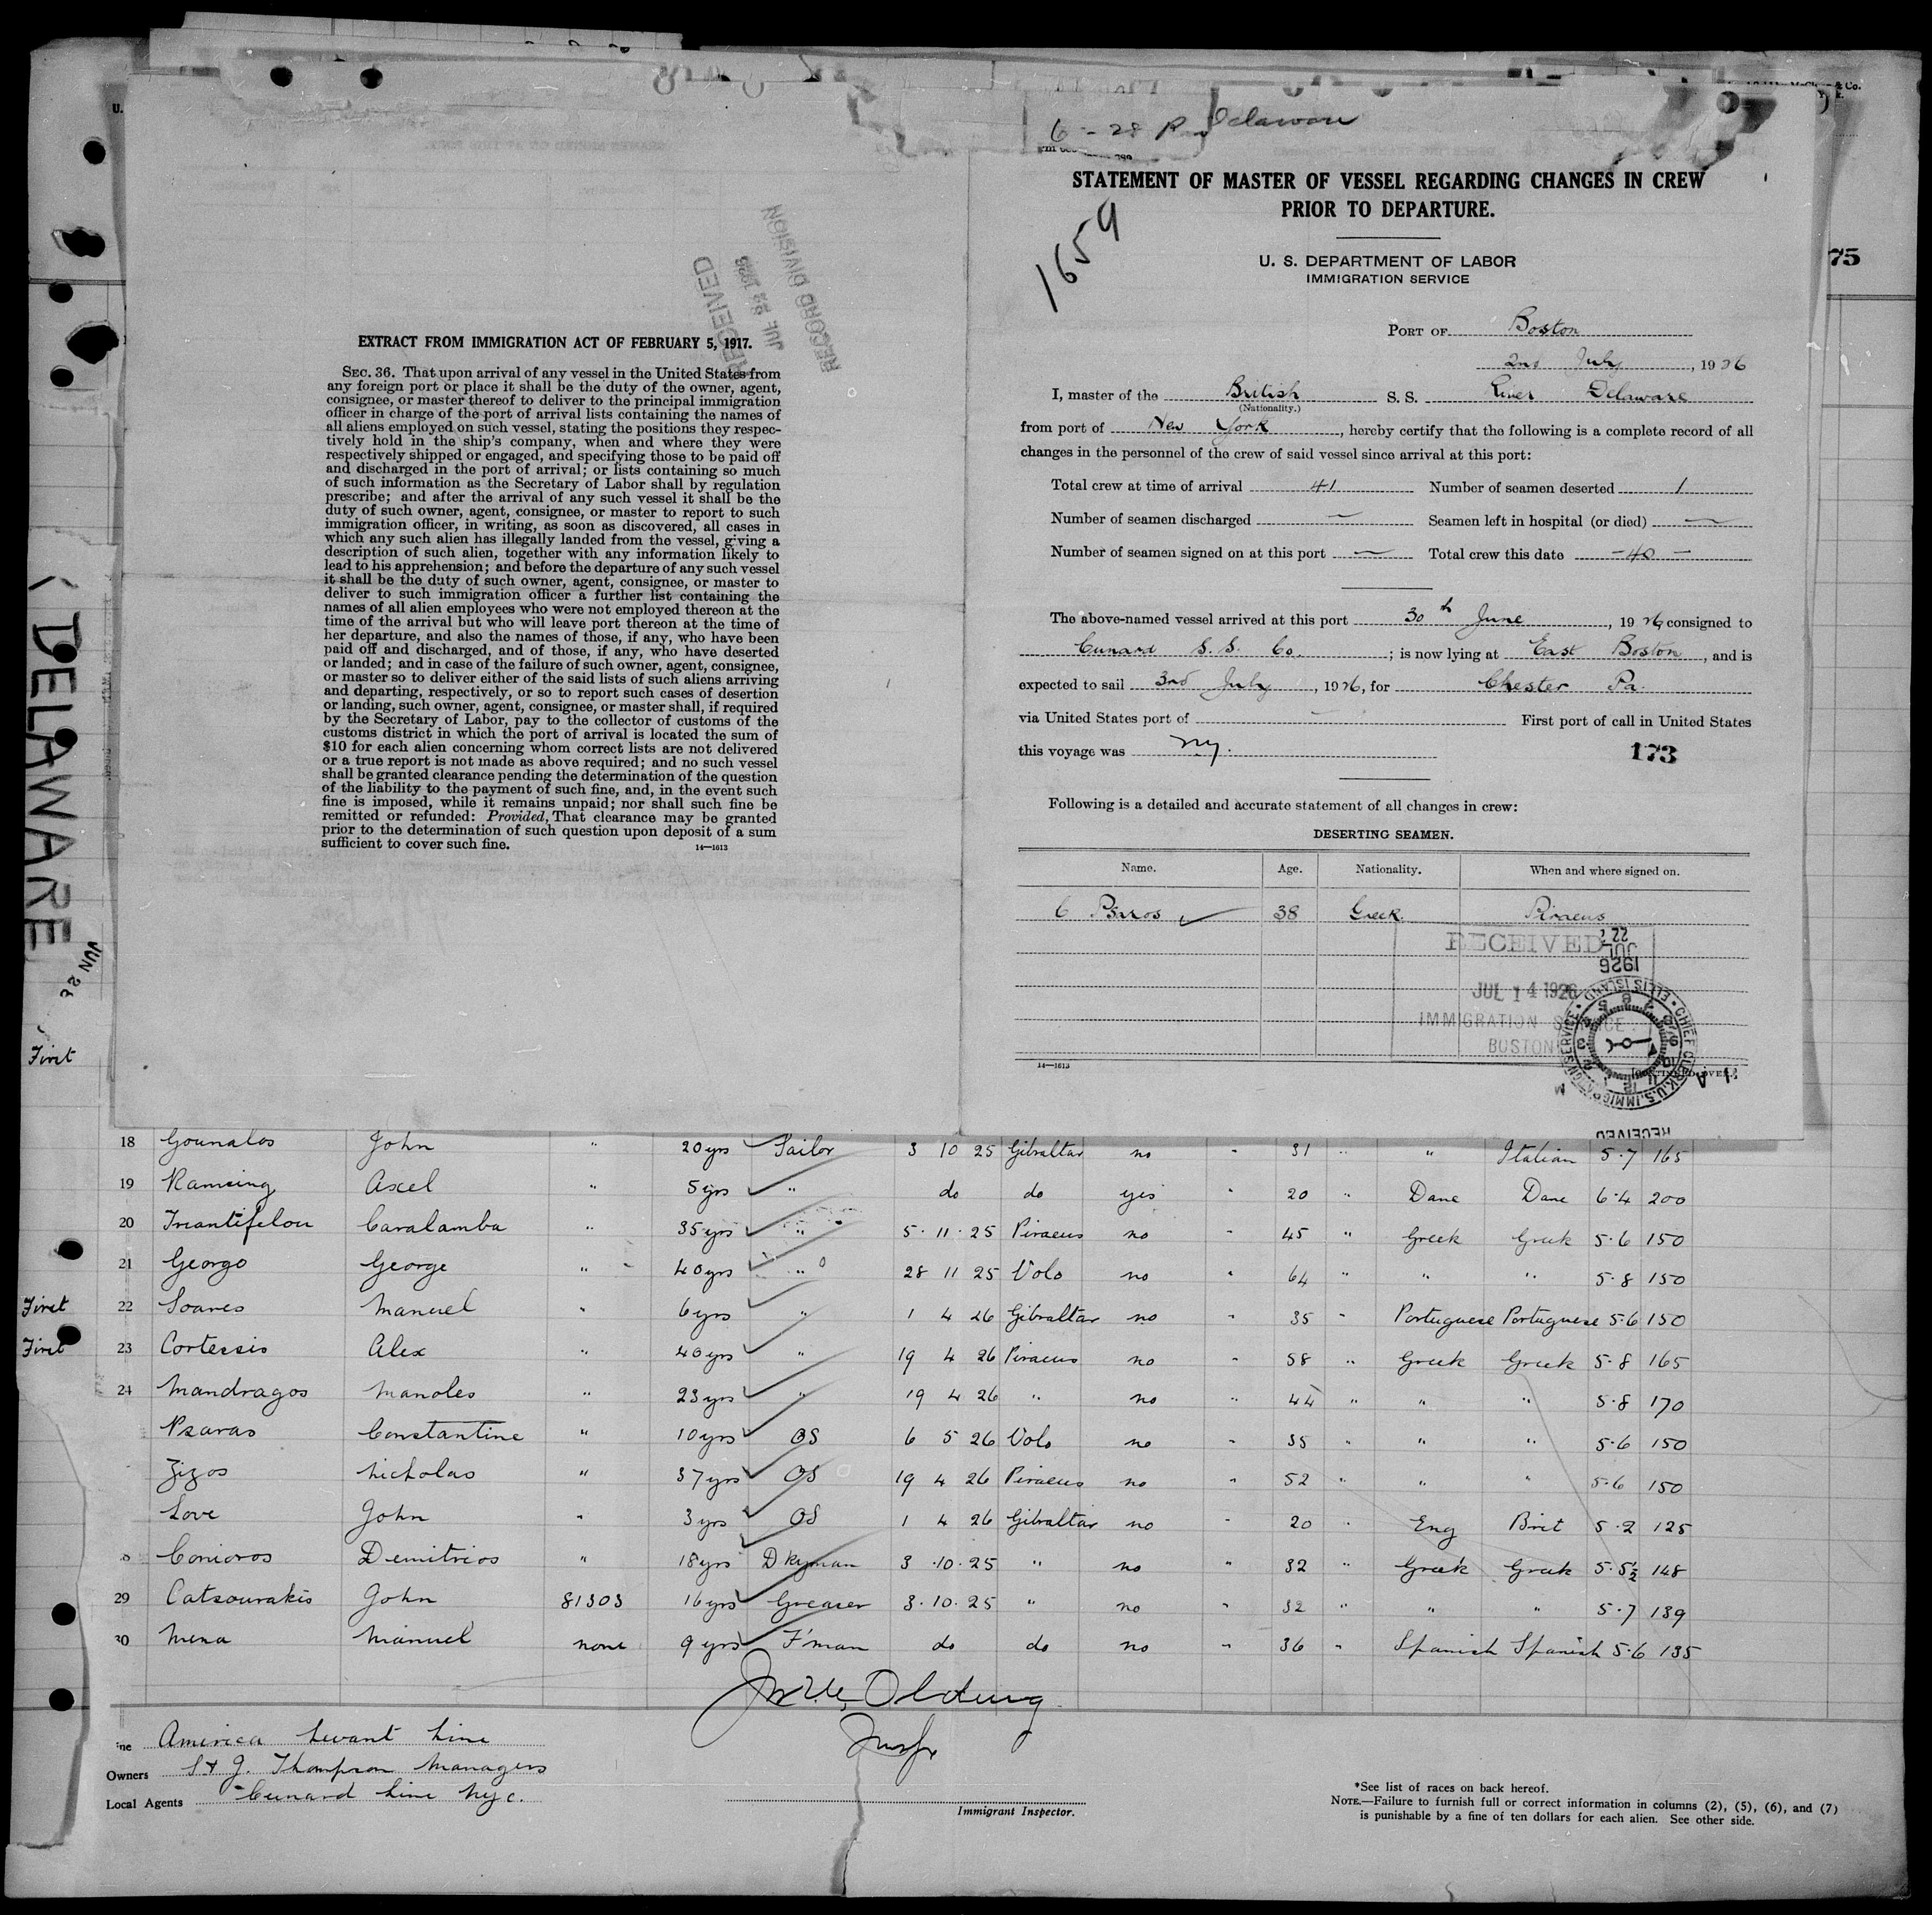 DELAWARE
JUN 26
First
First
First
EXTRACT FROM IMMIGRATION ACT OF FEBRUARY 5, 1917.
SEC. 36. That upon arrival of any vessel in the United States from
any foreign port or place it shall be the duty of the owner, agent,
consignee, or master thereof to deliver to the principal immigration
officer in charge of the port of arrival lists containing the names of
all aliens employed on such vessel, stating the positions they respec-
tively hold in the ship's company, when and where they were
respectively shipped or engaged, and specifying those to be paid off
and discharged in the port of arrival; or lists containing so much
of such information as the Secretary of Labor shall by regulation
prescribe; and after the arrival of any such vessel it shall be the
duty of such owner, agent, consignee, or master to report to such
immigration officer, in writing, as soon as discovered, all cases in
which any such alien has illegally landed from the vessel, giving a
description of such alien, together with any information likely to
lead to his apprehension; and before the departure of any such vessel
it shall be the duty of such owner, agent, consignee, or master to
deliver to such immigration officer a further list containing the
names of all alien employees who were not employed thereon at the
time of the arrival but who will leave port thereon at the time of
her departure, and also the names of those, if any, who have been
paid off and discharged, and of those, if any, who have deserted
or landed; and in case of the failure of such owner, agent, consignee,
or master so to deliver either of the said lists of such aliens arriving
and departing, respectively, or so to report such cases of desertion
or landing, such owner, agent, consignee, or master shall, if required
by the Secretary of Labor, pay to the collector of customs of the
customs district in which the port of arrival is located the sum of
$10 for each alien concerning whom correct lists are not delivered
or a true report is not made as above required; and no such vessel
shall be granted clearance pending the determination of the question
of the liability to the payment of such fine, and, in the event such
fine is imposed, while it remains unpaid; nor shall such fine be
remitted or refunded: Provided, That clearance may be granted
prior to the determination of such question upon deposit of a sum
sufficient to cover such fine. 14—1613
RECEIVED
JUL 24 1926
RECORD DIVISION
6 - 28 Delaware
1659
STATEMENT OF MASTER OF VESSEL REGARDING CHANGES IN CREW
PRIOR TO DEPARTURE.
U. S. DEPARTMENT OF LABOR
IMMIGRATION SERVICE
75
PORT OF Boston
2nd July, 1926
I, master of the British S. S. River Delaware
(Nationality.)
from port of New York, hereby certify that the following is a complete record of all
changes in the personnel of the crew of said vessel since arrival at this port:
Total crew at time of arrival 41 Number of seamen deserted 1
Number of seamen discharged — Seamen left in hospital (or died) —
Number of seamen signed on at this port — Total crew this date -40-
The above-named vessel arrived at this port 30th June, 1926, consigned to
Cunard S.S. Co.; is now lying at East Boston, and is
expected to sail 3rd July, 1926, for Chester Pa.
via United States port of — First port of call in United States
this voyage was NY. 173
Following is a detailed and accurate statement of all changes in crew:
DESERTING SEAMEN.
Name. Age. Nationality. When and where signed on.
C Psaros 38 Greek. Piraeus
RECEIVED
JUL 14 1926
IMMIGRATION SERVICE
BOSTON
22
JUL
1926
CHIEF CLERK, U.S. IMMIGRATION SERVICE • ELLIS ISLAND •
RECEIVED
14—1613
18 Gounalos John " 20yrs Sailor 3 10 25 Gibraltar no " 31 " " Italian 5·7 165
19 Ramsing Axel " 5yrs " do do yes " 20 " Dane Dane 6·4 200
20 Triantifelou Caralamba " 35yrs " 5·11·25 Piraeus no " 45 " Greek Greek 5·6 150
21 Georgo George " 40yrs " 28 11 25 Volo no " 64 " " " 5·8 150
22 Soares Manuel " 6yrs " 1 4 26 Gibraltar no " 35 " Portuguese Portuguese 5·6 150
23 Cortessis Alex " 40yrs " 19 4 26 Piraeus no " 58 " Greek Greek 5·8 165
24 Mandragos Manoles " 23yrs " 19 4 26 " no " 44 " " " 5·8 170
Psaras Constantine " 10yrs OS 6 5 26 Volo no " 35 " " " 5·6 150
Zizos Nicholas " 37yrs OS 19 4 26 Piraeus no " 52 " " " 5·6 150
Love John " 3yrs OS 1 4 26 Gibraltar no " 20 " Eng Brit 5·2 125
8 Conioros Demitrios " 18yrs Dkyman 3·10·25 " no " 32 " Greek Greek 5·5½ 148
29 Catsourakis John 81303 16yrs Greaser 3·10·25 " no " 32 " " " 5·7 139
30 Mena Manuel none 9yrs F'man do do no " 36 " Spanish Spanish 5·6 135
America Levant Line
Owners S & J. Thompson Managers
Local Agents Cunard Line NYC.
Immigrant Inspector.
*See list of races on back hereof.
NOTE.—Failure to furnish full or correct information in columns (2), (5), (6), and (7)
is punishable by a fine of ten dollars for each alien. See other side.